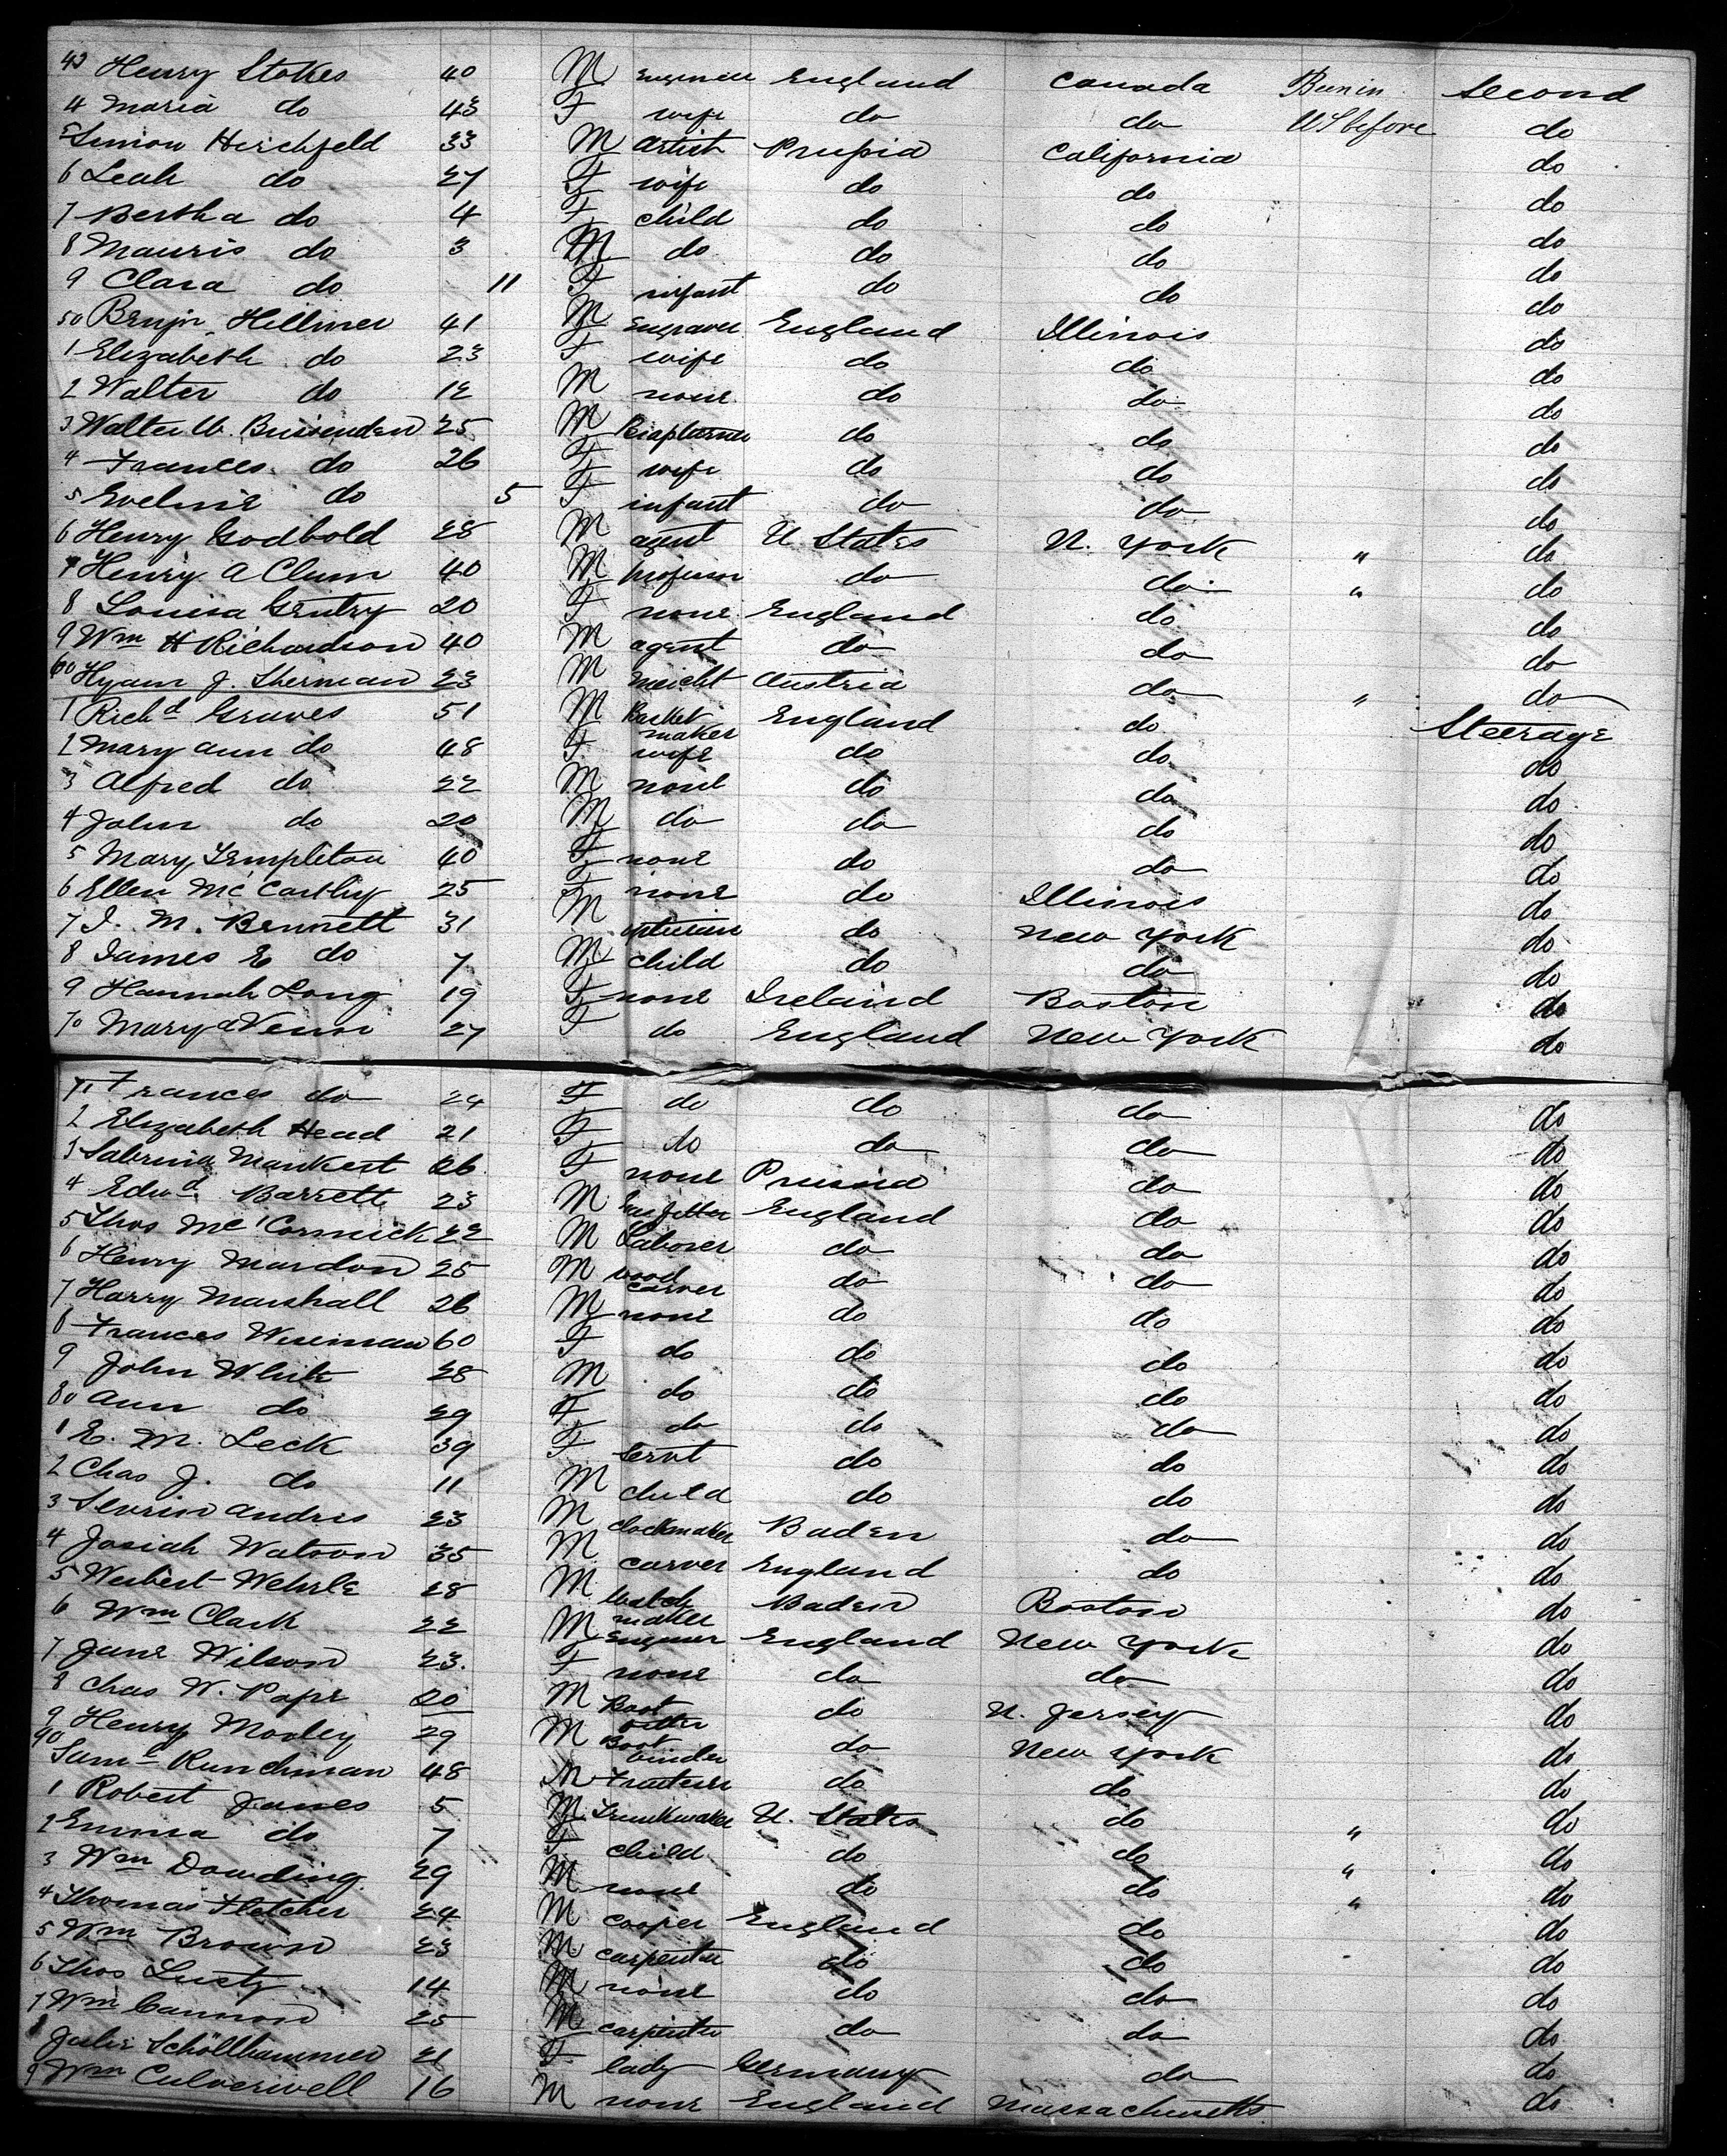 43 Henry Stokes 40 M Engineer England Canada Been in Second
4 Maria do 43 F wife do do US before do
5 Simon Hirchfeld 33 M artist Prussia California do
6 Leah do 27 F wife do do do
7 Bertha do 4 F child do do do
8 Mauris do 3 M do do do do
9 Clara do 11 F infant do do do
50 Benjn Hillmer 41 M Engraver England Illinois do
1 Elizabeth do 23 F wife do do do
2 Walter do 12 M none do do do
3 Walter W. 25 M do do do
4 Frances do 26 F wife do do do
5 Eveline do 5 F infant do do do
6 Henry Godbold 28 M agent U. States N. York " do
7 Henry A Clum 40 M professor do do " do
8 Louisa Gentry 20 F none England do do
9 Wm H Richardson 40 M agent do do do
60 Hyam J. Sherman 23 M Mercht Austria do " do
1 Richd Graves 51 M Basket maker England do Steerage
2 Mary ann do 48 F wife do do do
3 Alfred do 22 M none do do do
4 John do 20 M do do do do
5 Mary Templeton 40 F none do do do
6 Ellen McCarthy 25 F none do Illinois do
7 J. M. Bennett 31 M optician do New York do
8 James E do 7 M child do do do
9 Hannah Long 19 F none Ireland Boston do
70 Mary a Venn 27 F do England New York do
71 Frances do 24 F do do do do
2 Elizabeth Head 21 F do do do do
3 Sabrina Mankert 26 F none Prussia do do
4 Edwd Barrett 23 M Gas fitter England do do
5 Thos McCormick 22 M Laborer do do do
6 Henry Mardon 25 M wood carver do do do
7 Harry Marshall 26 M none do do do
8 Frances Wiseman 60 F do do do do
9 John White 28 M do do do do
80 Ann do 29 F do do do do
1 E. M. Leck 39 F Servt do do do
2 Chas J. do 11 M child do do do
3 Severin Andris 23 M clockmaker Baden do do
4 Josiah Watson 35 M carver England do do
5 Wehrle 28 M Watch maker Baden Boston do
6 Wm Clark 22 M Engineer England New York do
7 Jane Wilson 23 F none do do do
8 Chas W. Pope 20 M Boot do N. Jersey do
9 Henry Mosley 29 M do New York do
90 Saml Runchman 48 M Fruiterer do do do
1 Robert Janes 5 M Trunkmaker U. States do " do
2 Emma do 7 F child do do " do
3 Wm Dowding 29 M none do do " do
4 Thomas Fletcher 24 M cooper England do do
5 Wm Brown 23 M carpenter do do do
6 Thos Lusty 14 M none do do do
7 Wm Cannon 25 M carpenter do do do
8 Julie Schöllhammer 21 F lady Germany do do
9 Wm Culverwell 16 M none England Massachusetts do